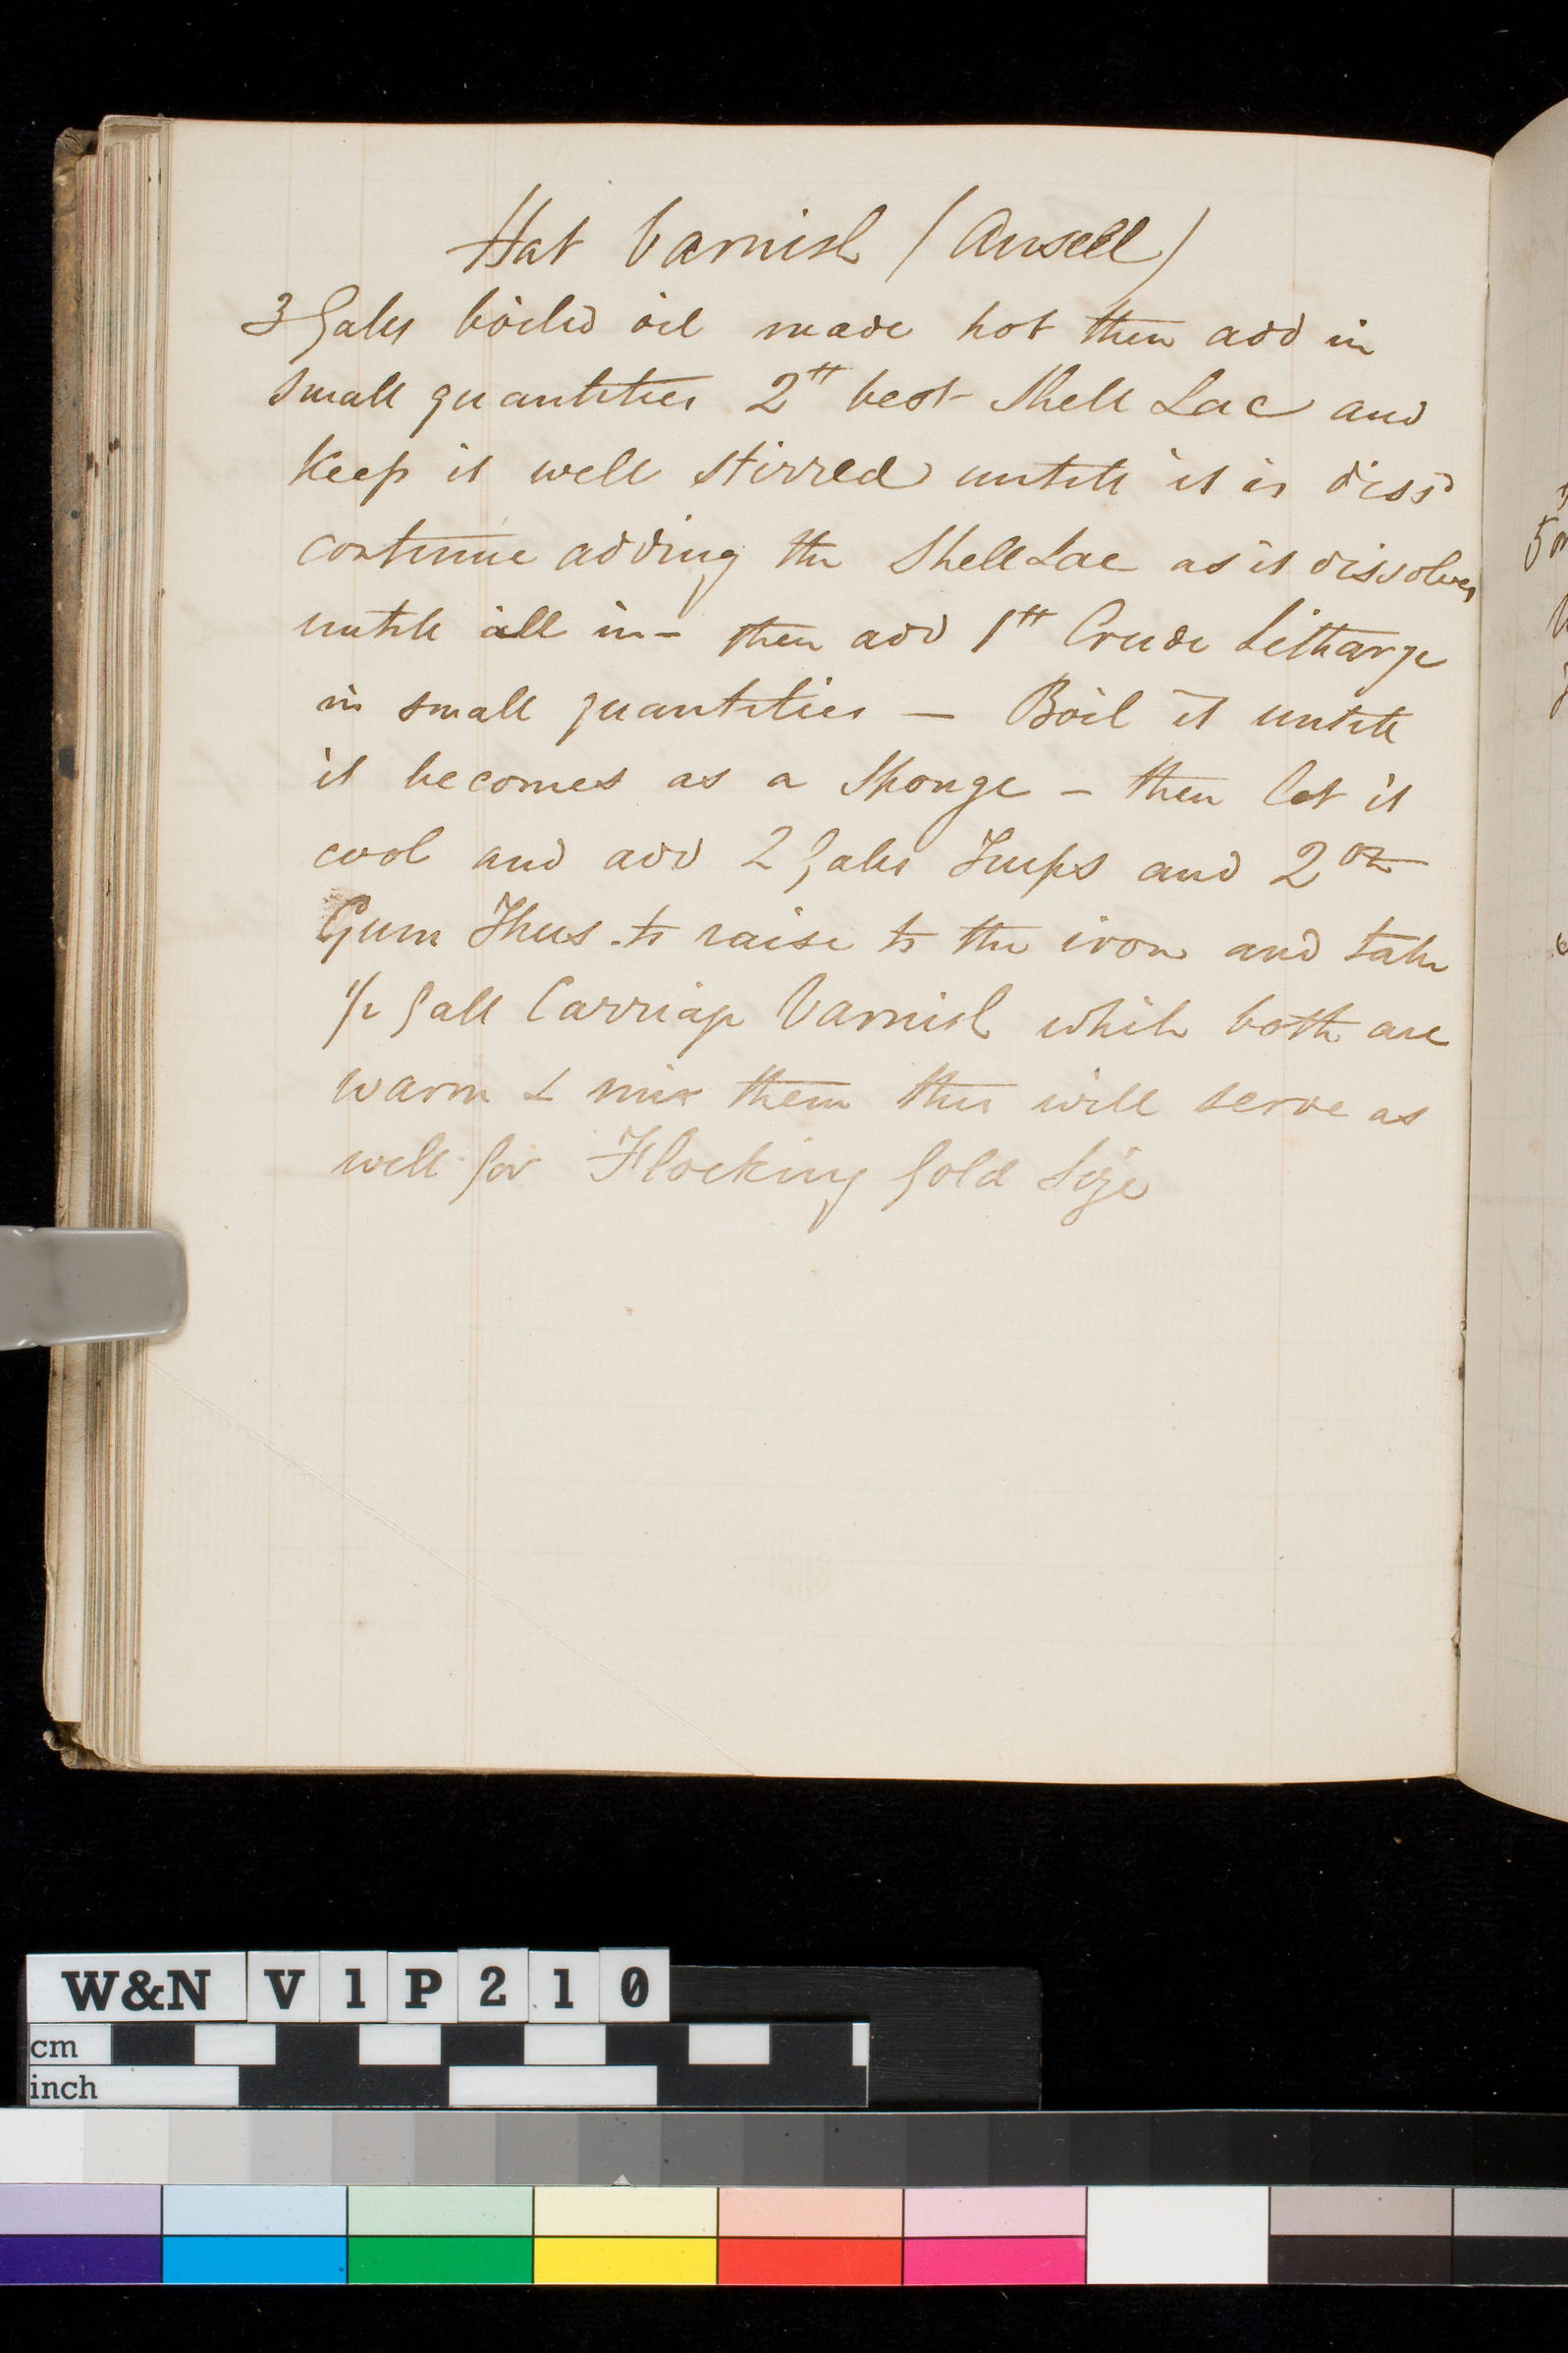 Hat Varnish (Ansell)
3 Galls boiled oil made hot then add in
small quantities 2 tt best Shell Lac and
Keep it well stirred untill it is dissd
continue adding the Shell Lac as it dissolves
untill all in - then add 1 tt Crude Litharge
in small quantities — Boil it untill
it becomes as a Sponge - then let it
cool and add 2 Galls Turps and 2 oz
Gum Thus to raise to the iron and take
1/2 Gall Carriage Varnish while both are
warm & mix them this will serve as
well for Flocking Gold Size
W&N V1P210
cm
inch